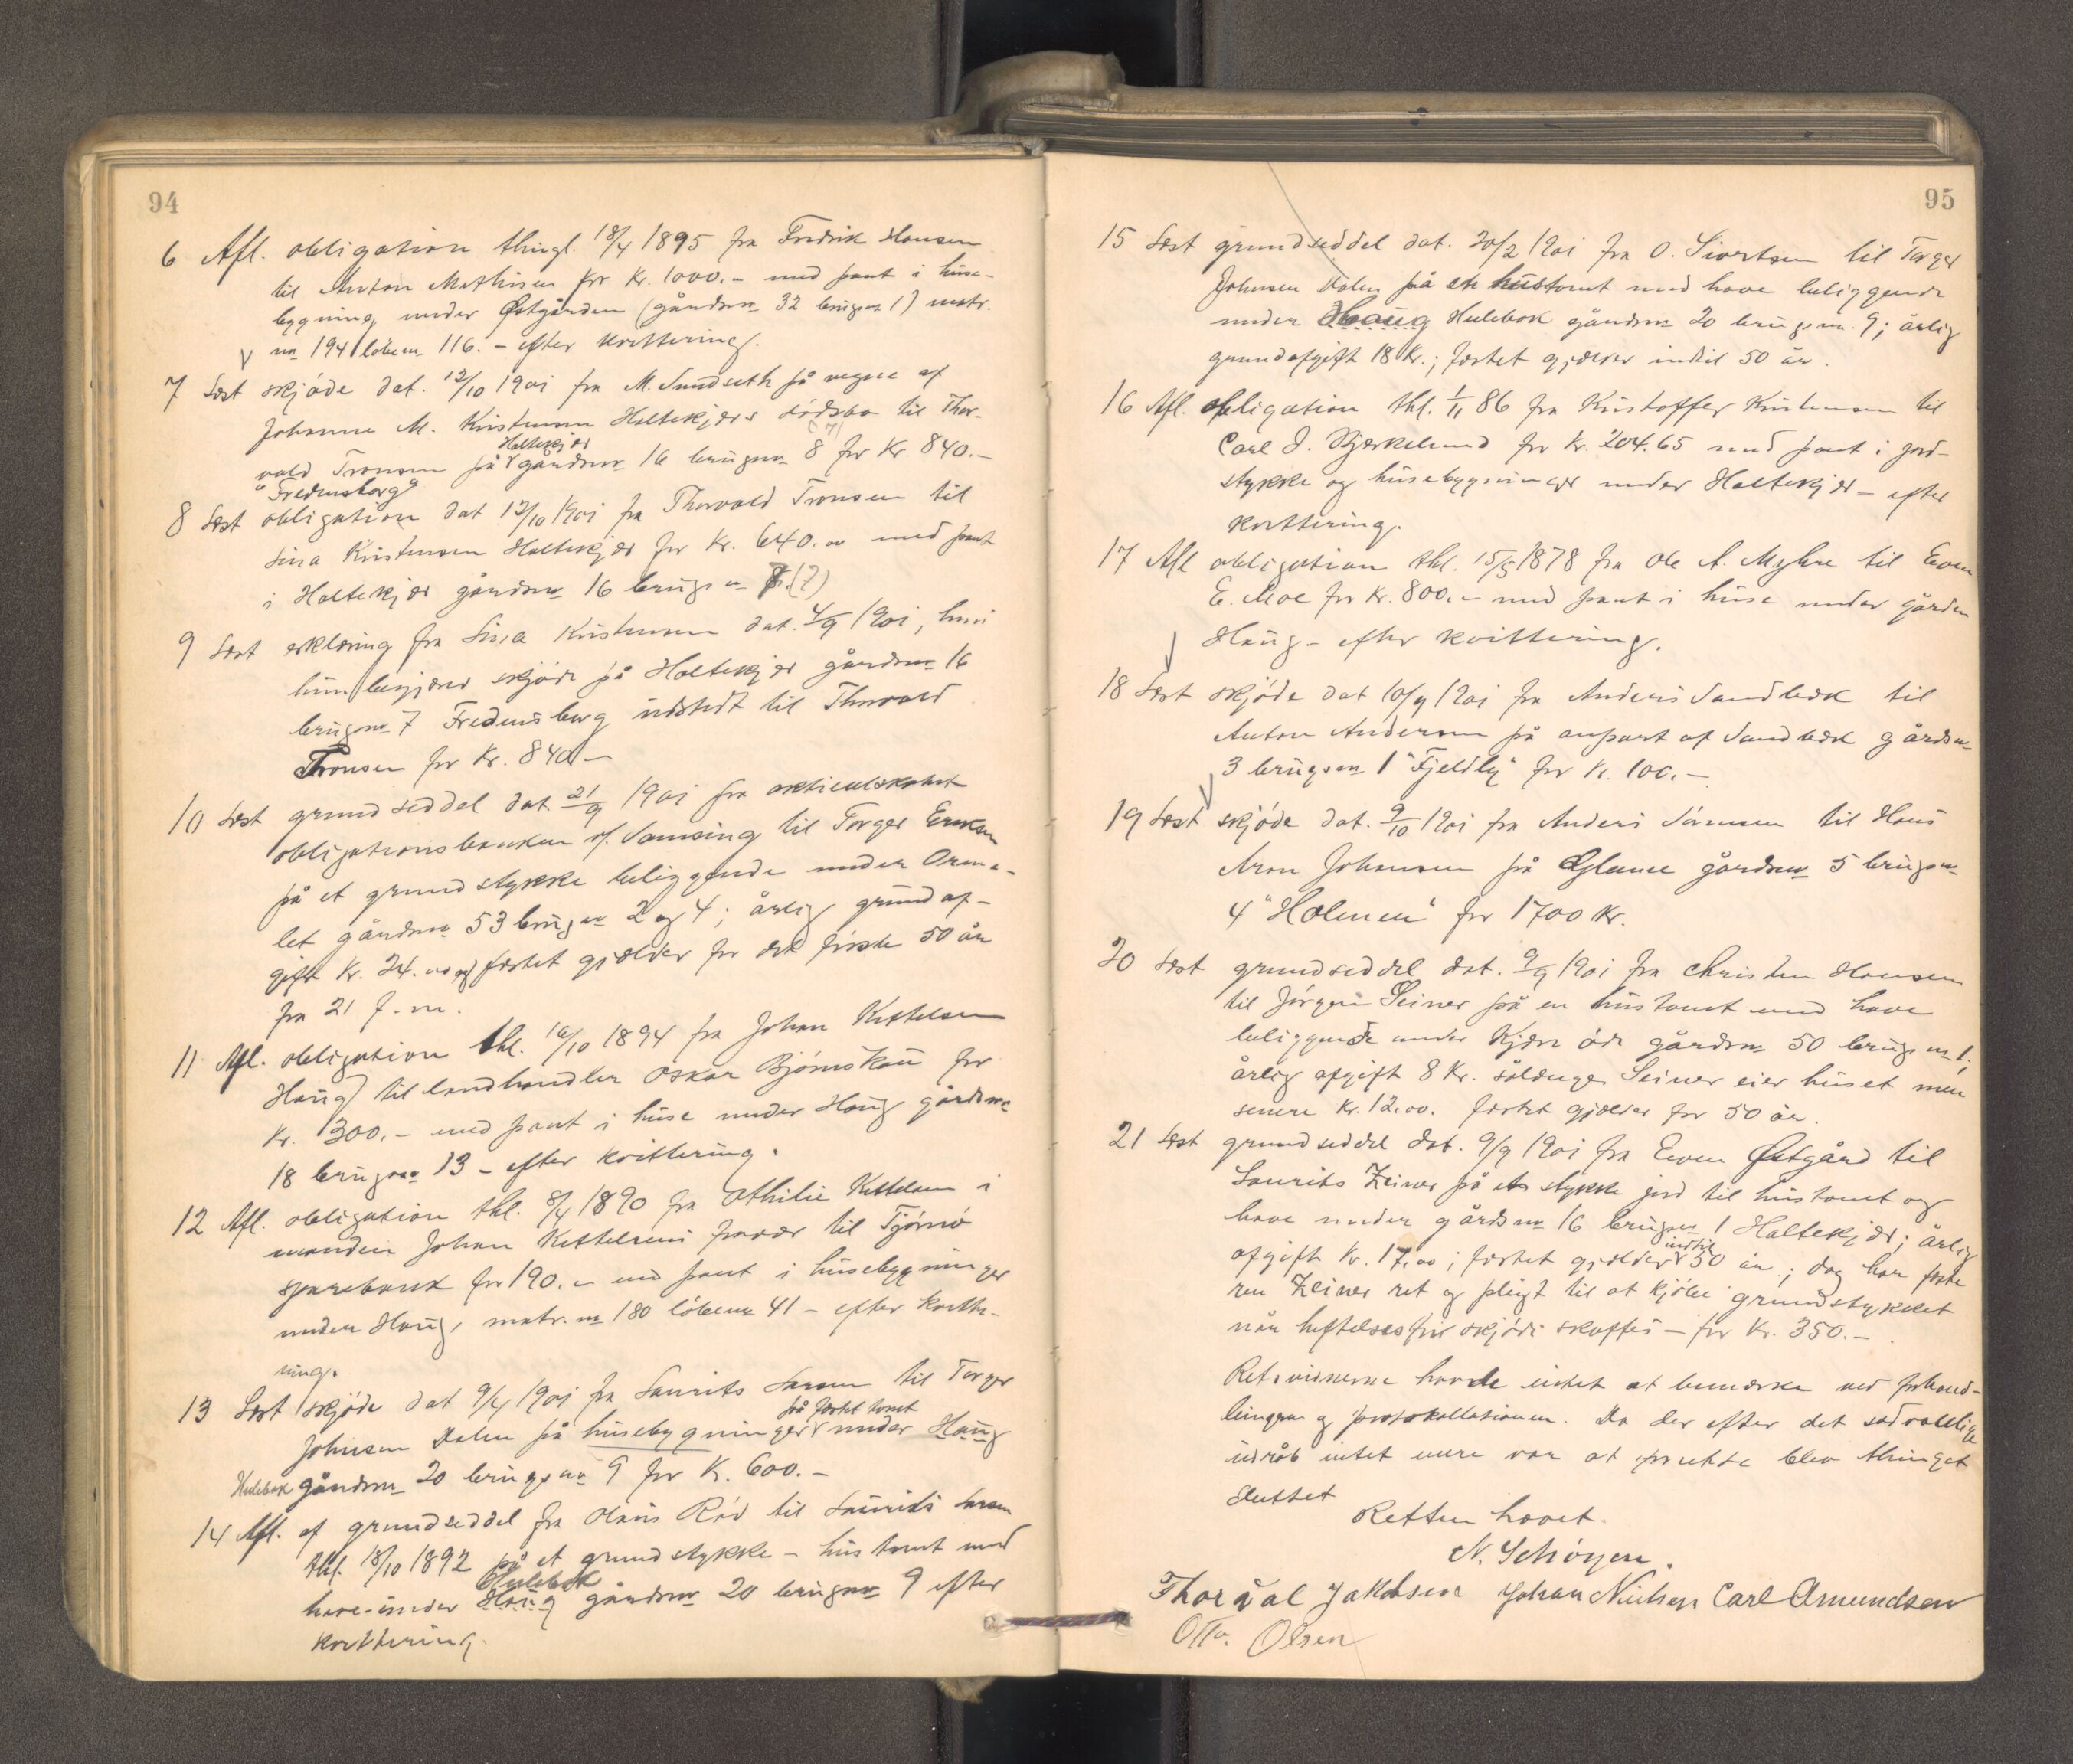 94
6 Afl. obligation thingl. 18/4 1895 fra Fredrik Hansen
til Anton Mathisen for Kr. 1000.- med pant i huse-
bygning under Østgården (gårdsno 32 brugsno 1) matr.
no 194 løbeno 116. - efter kvittering.
7 Læst skjøde dat. 12/10 1901 fra M. Sundseth på vegne af
Johanne M. Kristensen Holtekjærs dødsbo til Thor-
vald Tronsen på Holtekjær gårdsno 16 brugsno 8 (7) for Kr. 840.-
"Fredensborg"
8 Læst obligation dat 12/10 1901 fra Thorvald Tronsen til
Lina Kristensen Holtekjær for Kr. 640.00 med pant
i Holtekjær gårdsno 16 brugsno 8. (7)
9 Læst erklæring fra Lina Kristensen dat. 4/9 1901, hvori
hun begjærer skjøde på Holtekjær gårdsno 16
brugsno 7 Fredensborg udstedt til Thorvald
Tronsen for Kr. 840.-
10 Læst grundseddel dat. 21/9 1901 fra
obligationsbanken v/ Samsing til Torger Eriksen
på et grundstykke beliggende under Orme-
let gårdsno 53 brugsno 2 og 4; årlig grundaf-
gift Kr. 24.00 og festet gjælder for det første 50 år
fra 21 f. m.
11 Afl. obligation thl. 16/10 1894 fra Johan Kettelsen
Haug til landhandler Oskar Bjørnskau for
Kr. 1300.- med pant i huse under Haug gårdsno
18 brugsno 13 - efter kvittering.
12 Afl. obligation thl. 8/4 1890 fra Othilie Kettelsen i
manden Johan Kettelsens fravær til Tjømø
sparebank for 190.- med pant i husebygninger
under Haug, matr. no 180 løbeno 41 - efter kvitte-
ring.
13 Læst skjøde dat 9/4 1901 fra Laurits Larsen til Torger
Johnsen Dalen på husebygninger på festet tomt under Haug
Hulebak gårdsno 20 brugsno 9 for Kr. 600.-
14 Afl. af grundseddel fra Olaus Rød til Laurits Larsen
thl. 18/10 1892 på et grundstykke - hustomt med
have - under Haug Hulebak gårdsno 20 brugsno 9 efter
kvittering.
95
15 Læst grundseddel dat. 20/2 1901 fra O. Sivertsen til Torger
Johnsen Dalen på en hustomt med have beliggende
under Haug Hulebak gårdsno 20 brugsno. 9; årlig
grundafgift 18 Kr.; festet gjælder indtil 50 år.
16 Afl. obligation thl. 1/11 86 fra Kristoffer Kristensen til
Carl J. Bjerkelund for Kr. 204.65 med pant i jord-
stykke og husebygninger under Holtekjær - efter
kvittering.
17 Afl obligation thl. 15/5 1878 fra Ole A. Myhre til Even
E. Moe for Kr. 800.- med pant i huse under gården
Haug - efter kvittering.
18 Læst skjøde dat 10/9 1901 fra Anders Sandbæk til
Anton Andersen på anpart af Sandbæk gårdsno
3 brugsno 1 "Fjeldly" for Kr. 100.-
19 Læst skjøde dat. 9/10 1901 fra Anders Sørensen til Hans
Aron Johansen på Glenne gårdsno 5 brugsno
4 "Holmen" for 1700 Kr.
20 Læst grundseddel dat. 9/9 1901 fra Christen Hansen
til Jørgen Seiner på en hustomt med have
beliggende under Kjære øde gårdsno 50 brugsno 1;
årlig afgift 8 Kr. sålænge Seiner eier huset men
senere Kr. 12.00. festet gjælder for 50 år.
21 Læst grundseddel dat. 9/9 1901 fra Even Østgård til
Laurits Zeiner på et stykke jord til hustomt og
have under gårdsno 16 brugsno 1 Holtekjær; årlig
afgift Kr. 17.00; festet gjælder indtil 50 år; dog har feste
ren Zeiner ret og pligt til at kjøbe grundstykket
når heftelsesfrit skjøde skaffes - for Kr. 350.-
Retsvidnerne havde intet at bemærke ved forhand-
lingen og protokollationen. Da der efter det sædvanlige
udråb intet mere var at foretage blev thinget
sluttet
Retten hævet.
N. Schøyen.
Thorval Jakobsen Johan Nielsen Carl Amundsen
Otto Olsen